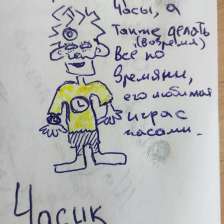 Часы, а
также делать
(вовремя)
всё по
времяни,
его любимая
играс
часами.
Часик